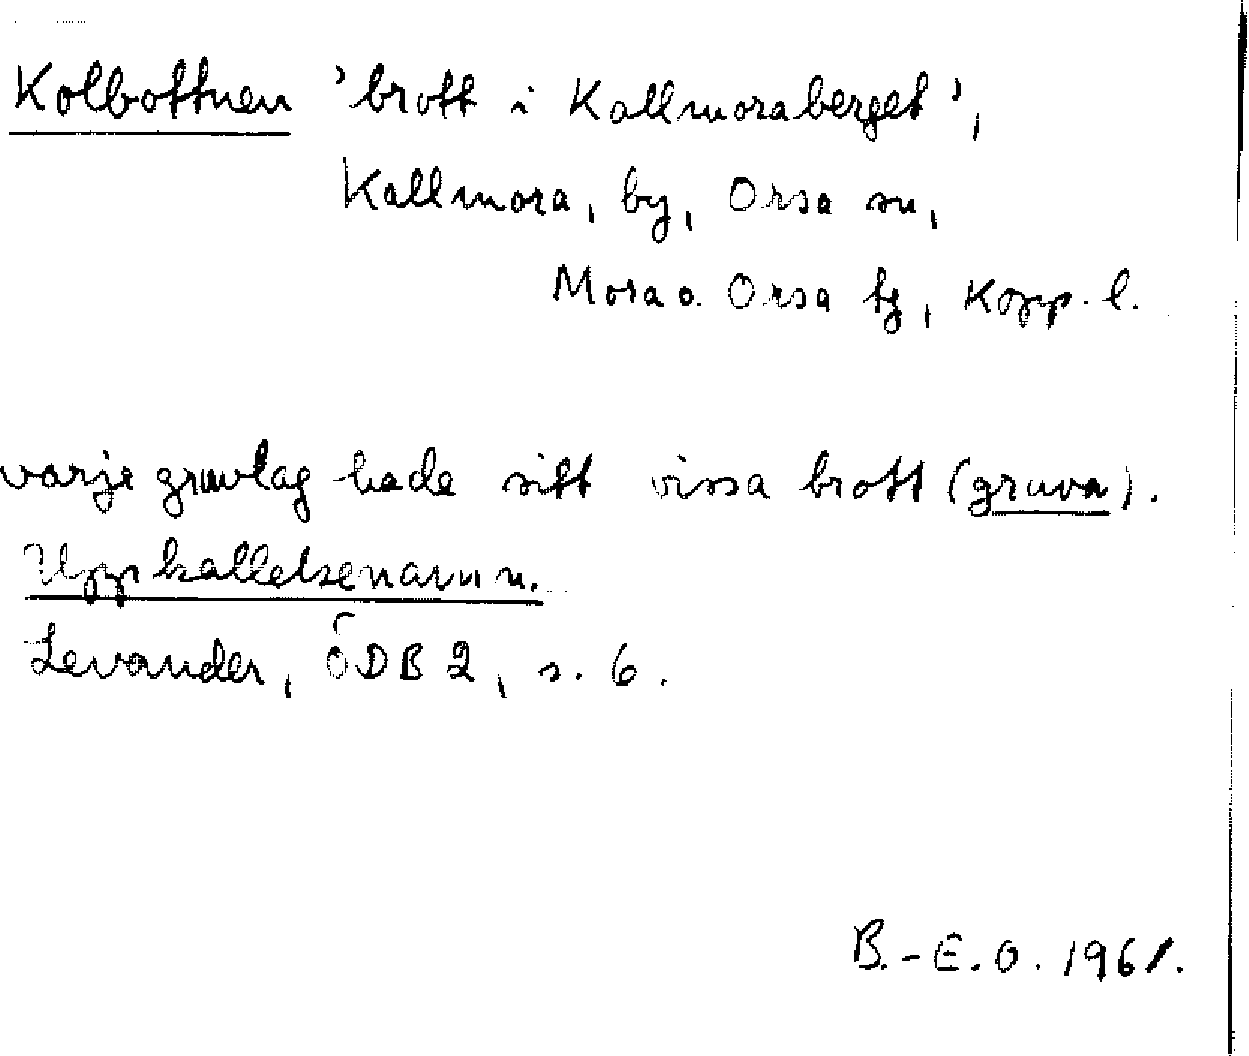 Kolbottnen 'brott i Kallmoraberget',
Kallmora, by, Orsa sn,
Mora o. Orsa tg, Kopp. l.
varje gruvlag hade sitt vissa brott (gruva).
Uppkallelsenamn.
Levander, ÖDB 2, s. 6.
B.-E.O. 1961.